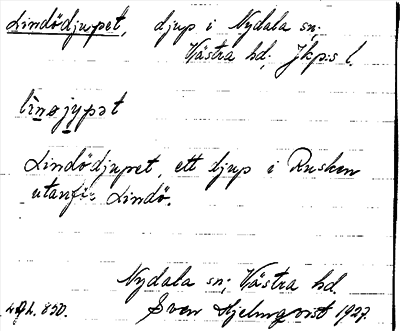 Lindödjupet, djup i Nydala sn;
Västra hd; Jkp:s l.
linøjypət
Lindödjupet, ett djup i Rusken
utanför Lindö.
Nydala sn; Västra hd
Sven Hjelmqvist 1927.